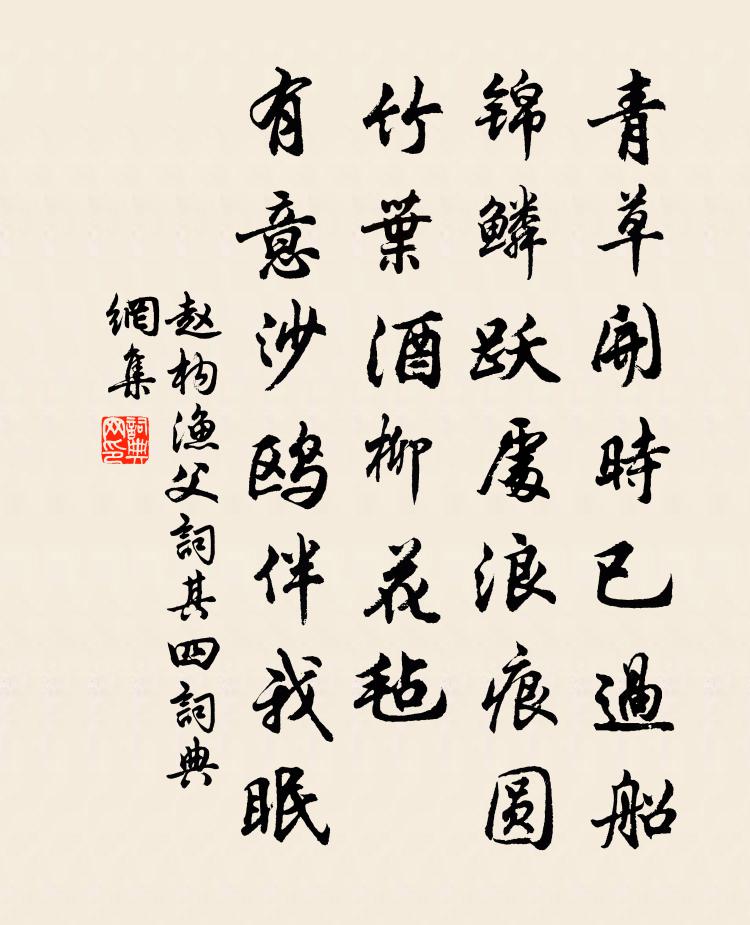 青草開時已過船
锦鳞跃處浪痕圆
竹葉酒柳花毡
有意沙鸥伴我眠
赵构渔父詞其四詞典
網集
詞典
网印